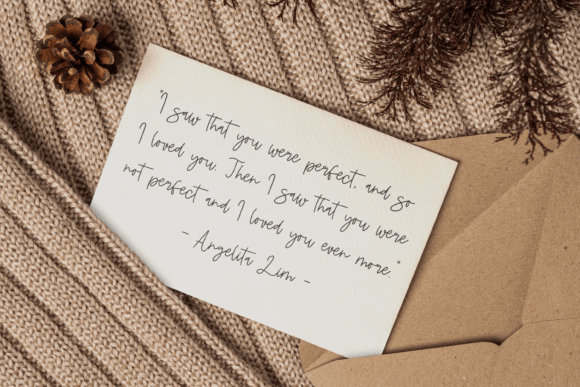 "I saw that you were perfect, and so
I loved you. Then I saw that you were
not perfect and I loved you even more."
- Angelita Lim -